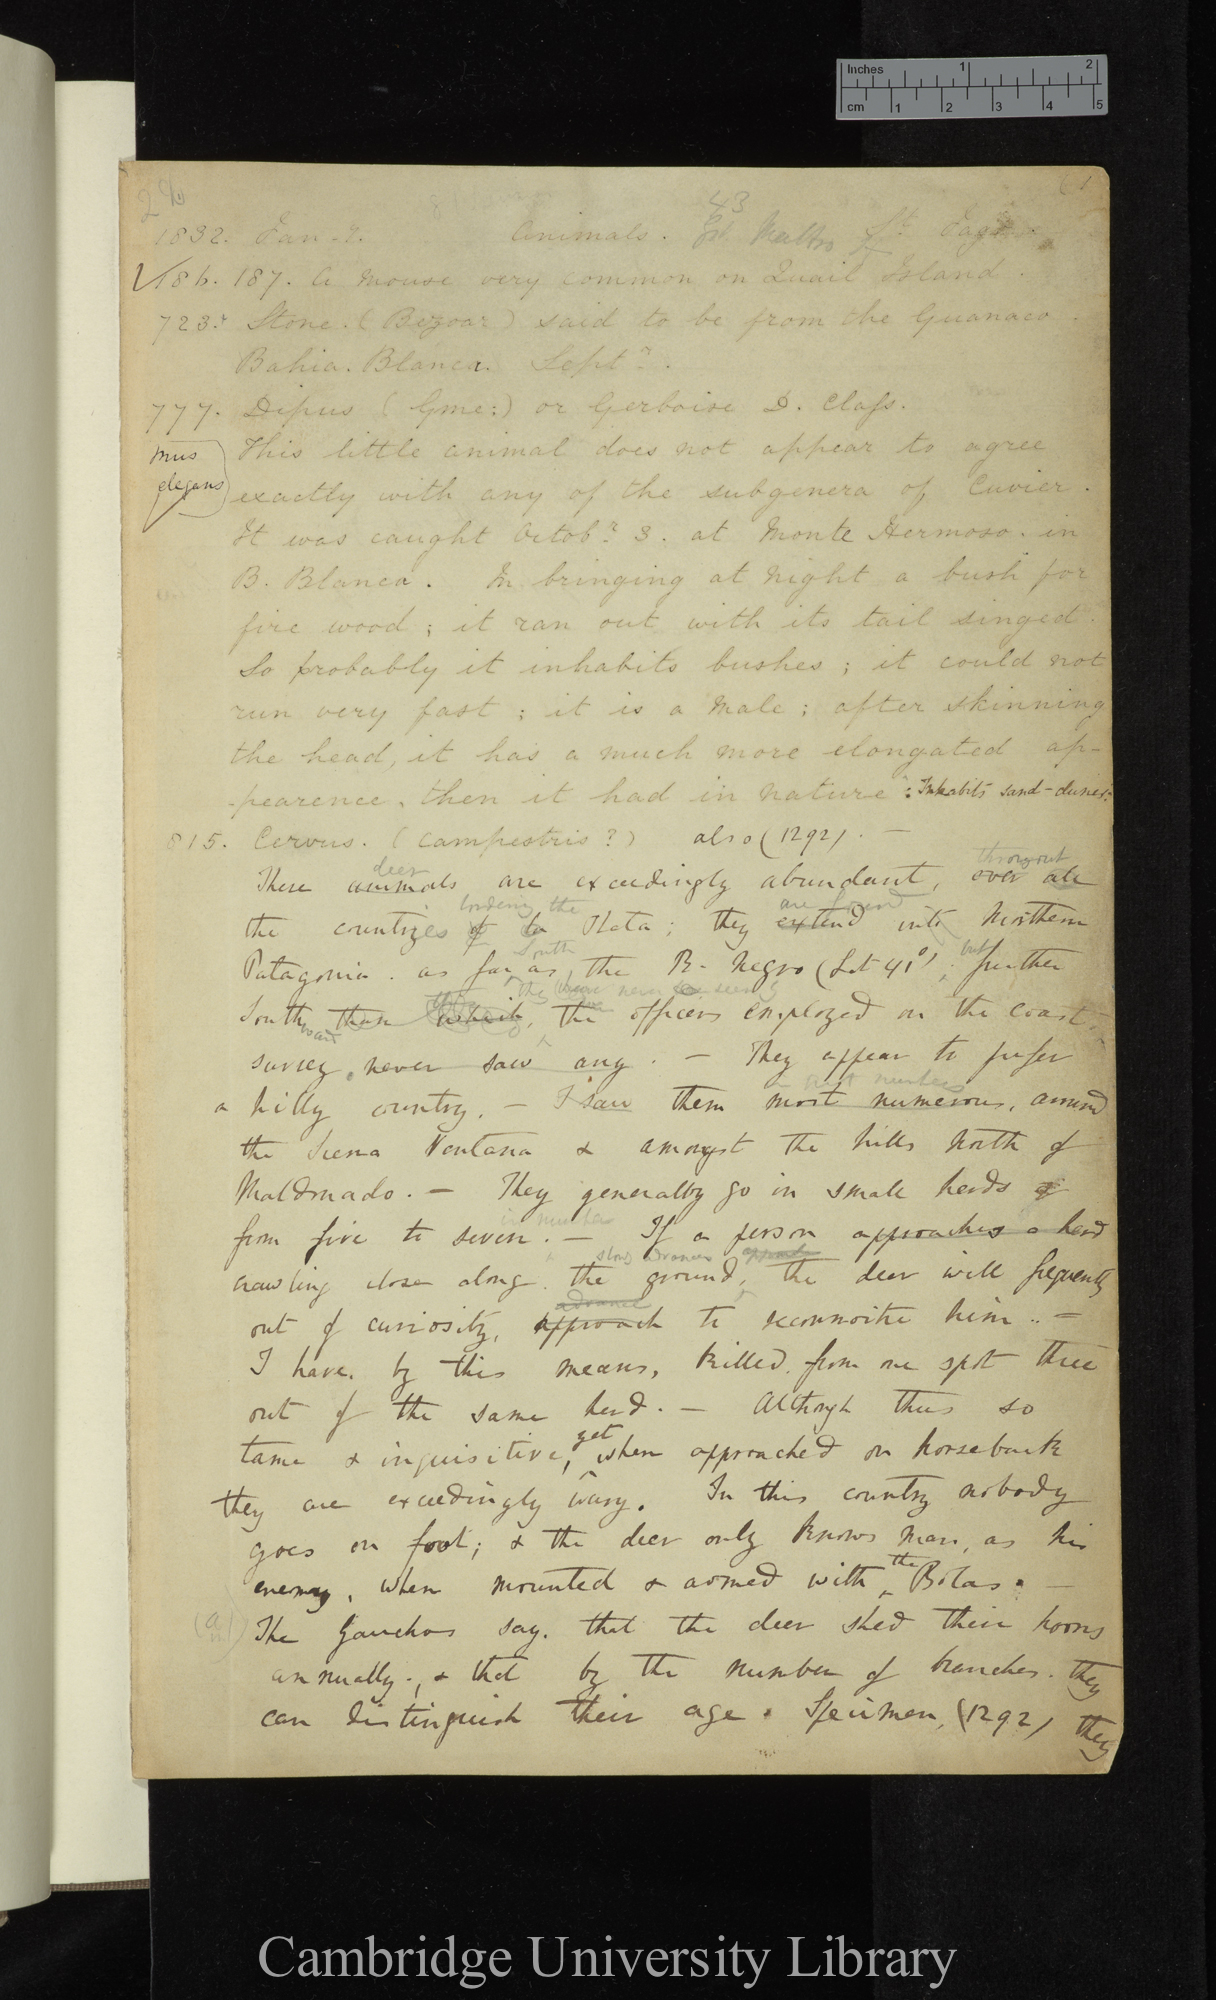 Inches 1 2
cm 1 2 3 4 5
43
1832. Jan. Animals. St. Jago
186. 187. A mouse very common on Quail Island.
723. Stone. (Bezoar) said to be from the Guanaco.
Bahia. Blanca. Septr.
777. Dipus (Gme:) or Gerboise D. Class.
Mus elegans
This little animal does not appear to agree
exactly with any of the subgenera of Cuvier.
It was caught Octobr. 3. at Monte Hermoso. in
B. Blanca. In bringing at night a bush for
fire wood; it ran out with its tail singed.
So probably it inhabits bushes; it could not
run very fast; it is a Male; after skinning
the head, it has a much more elongated ap-
-pearence, then it had in nature: Inhabits sand-dunes:
815. Cervus. (campestris?) also (1292). —
deer throughout
These animals are exceedingly abundant, over all
bordering the are found
the countries of La Plata; they extend into Northern
South but
Patagonia. as far as the R. Negro (Lat 41°); further
South than which, the officers employed on the coast
survey, never saw any. — They appear to prefer
a hilly country. — I saw them most numerous, around
the Sierra Ventana & amongst the hills North of
Maldonado. — They generally go in small herds of
in number
from five to seven. — If a person approaches a herd
slowly advances approach
crawling close along the ground, the deer will frequently
advance
out of curiosity, approach to reconnoitre him.. —
I have, by this means, killed, from one spot three
out of the same herd. — Although thus so
yet
tame & inquisitive, when approached on horseback
they are exceedingly wary. In this country nobody
goes on foot; & the deer only knows man, as his
the
enemy, when mounted & armed with Bolas. —
(a)
The Gauchos say, that the deer shed their horns
annually., & that by the number of branches. they
can distinguish their age. Specimen, (1292) they
Cambridge University Library